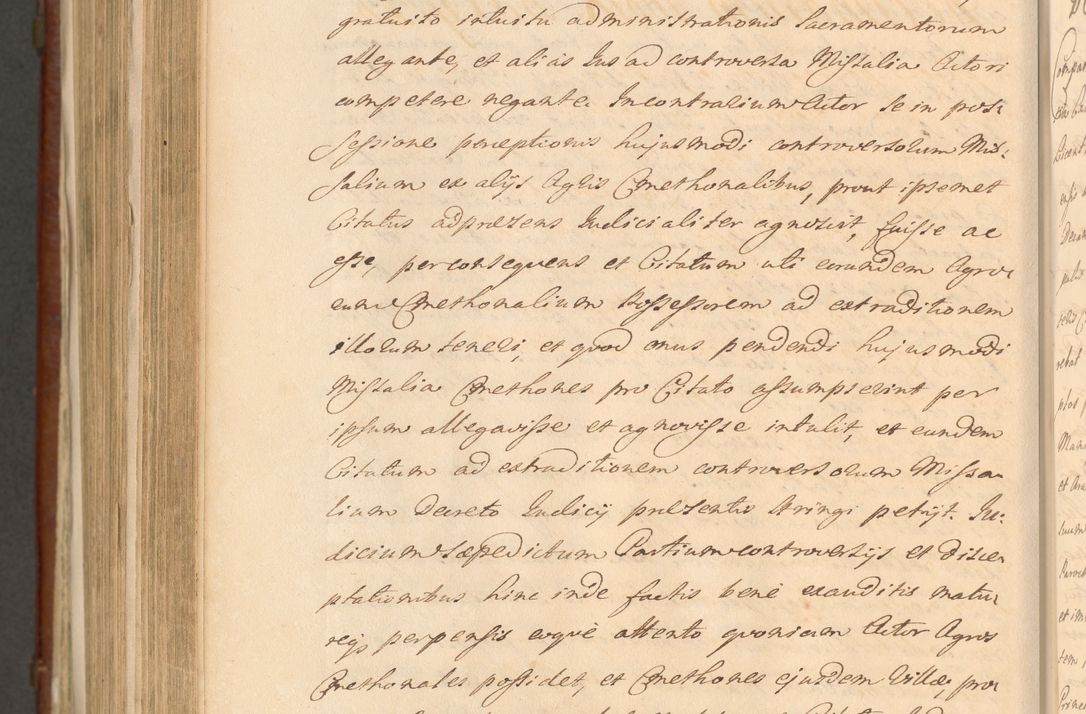 gratuito intuitu administrationis Sacramentorum
allegante, et alias Jus ad controversa Missalia Actori
competere negante. In contrarium Actor se in pos:
sessione perceptionis hujusmodi controversorum Mis:
salium ex alijs Agris Cmethonalibus, prout ipsemet
Citatus ad praesens Judicialiter agnoscit, fuisse ac
esse, per consequens et Citatum uti eorundem Agro
rum Cmethonalium Possessorem ad extraditionem
illorum teneri, et quod onus pendendi hujusmodi
Missalia Cmethones pro Citato assumpserint per
ipsum allegavisse et agnovisse intulit, et eundem
Citatum ad extraditionem controversorum Missa
lium Decreto Judicij praesentis stringi petijt. Ju:
dicium saepedictum Partium controversijs et disce
ptationibus hinc inde factis bene exauditis matu
reqs perpensis eoque attento quoniam Actor Agros
Cmethonales possidet, et Cmethones ejusdem Villae, pro